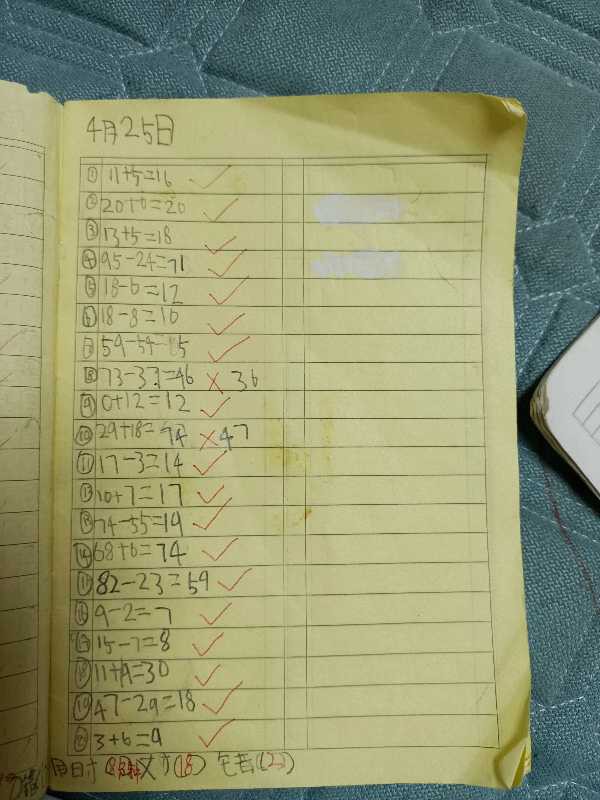 4月25日
① 11+5=16 ✓
② 20+0=20 ✓
③ 13+5=18 ✓
④ 95-24=71 ✓
⑤ 18-6=12 ✓
⑥ 18-8=10 ✓
⑦ 59-54=5 ✓
⑧ 73-37=46 × 36
⑨ 0+12=12 ✓
⑩ 29+18= × 47
⑪ 17-3=14 ✓
⑫ 10+7=17 ✓
⑬ 74-55=19 ✓
⑭ 68+6=74 ✓
⑮ 82-23=59 ✓
⑯ 9-2=7 ✓
⑰ 15-7=8 ✓
⑱ 11+19=30 ✓
⑲ 47-29=18 ✓
⑳ 3+6=9 ✓
用时 对(18) 错(2)